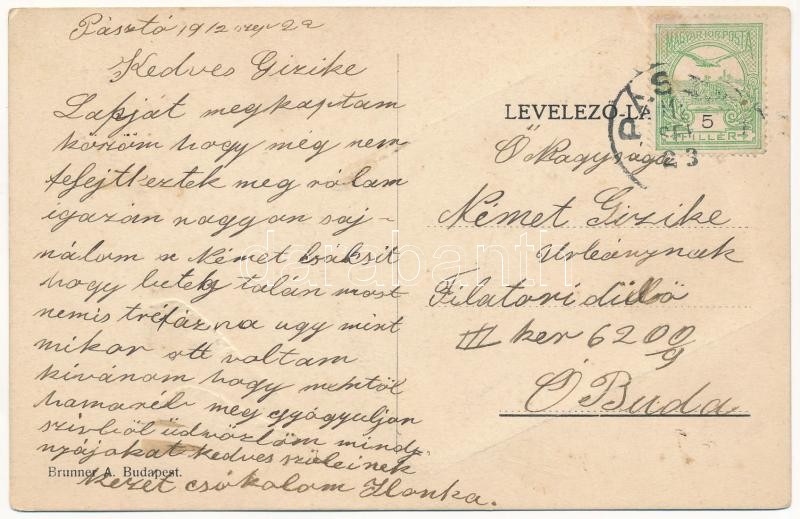 Pásztó 1912 sep 22
Kedves Gizike
Lapját megkaptam
közöm hogy még nem
felejtkeztek meg rólam
igazán nagyon saj-
nálom a Német Csáksit
hogy beteg talán most
nemis tréfázna ugy mint
mikor ott voltam
kivánom hogy
hamaréb meg gyógyuljon
szivböl üdvözlöm mindy-
nyájokat kedves szüleinek
kezet csókolom Ilonka.
Brunner A. Budapest.
LEVELEZŐ-LA
MAGYAR KIR. POSTA
5
FILLÉR
PÁS
23
Ő Nagysága
Német Gizike
Urleánynak
Filatori dülö
III ker 6200/9
Ó Buda
darabanth